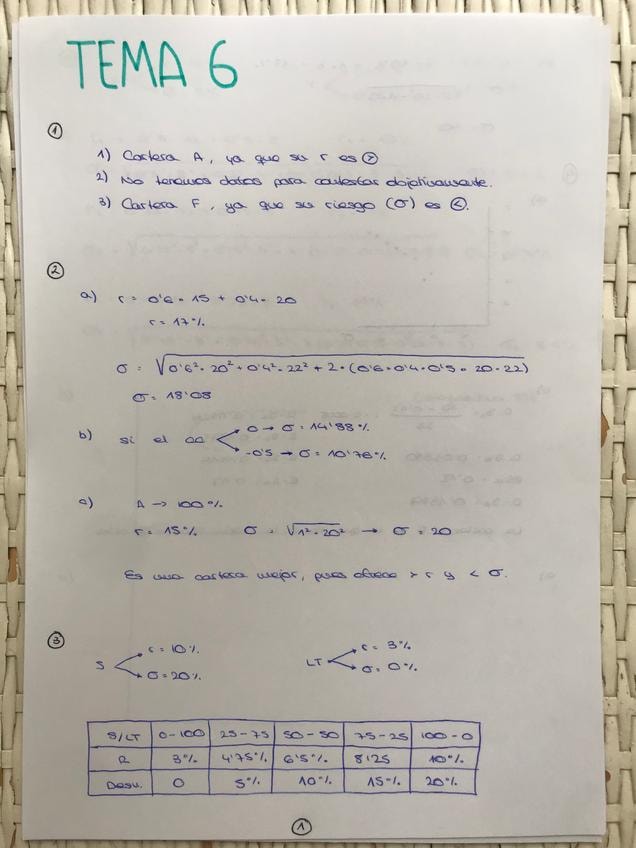 TEMA 6
①
1) Cartera A, ya que su r es >
2) No tenemos datos para contestar objetivamente.
3) Cartera F, ya que su riesgo (σ) es <.
②
a) r = 0'6 · 15 + 0'4 · 20
r = 17%
σ = √0'6² · 20² + 0'4² · 22² + 2 · (0'6 · 0'4 · 0'5 · 20 · 22)
σ = 18'08
b) Si el cc → 0 → σ = 14'88%
→ -0'5 → σ = 10'76%
c) A → 100%
r = 15% σ = √1² · 20² → σ = 20
Es una cartera mejor, pues ofrece > r y < σ.
③
S → r = 10% LT → r = 3%
→ σ = 20% → σ = 0%
S/LT 0-100 25-75 50-50 75-25 100-0
R 3% 4'75% 6'5% 8'25 10%
Desv. 0 5% 10% 15% 20%
①